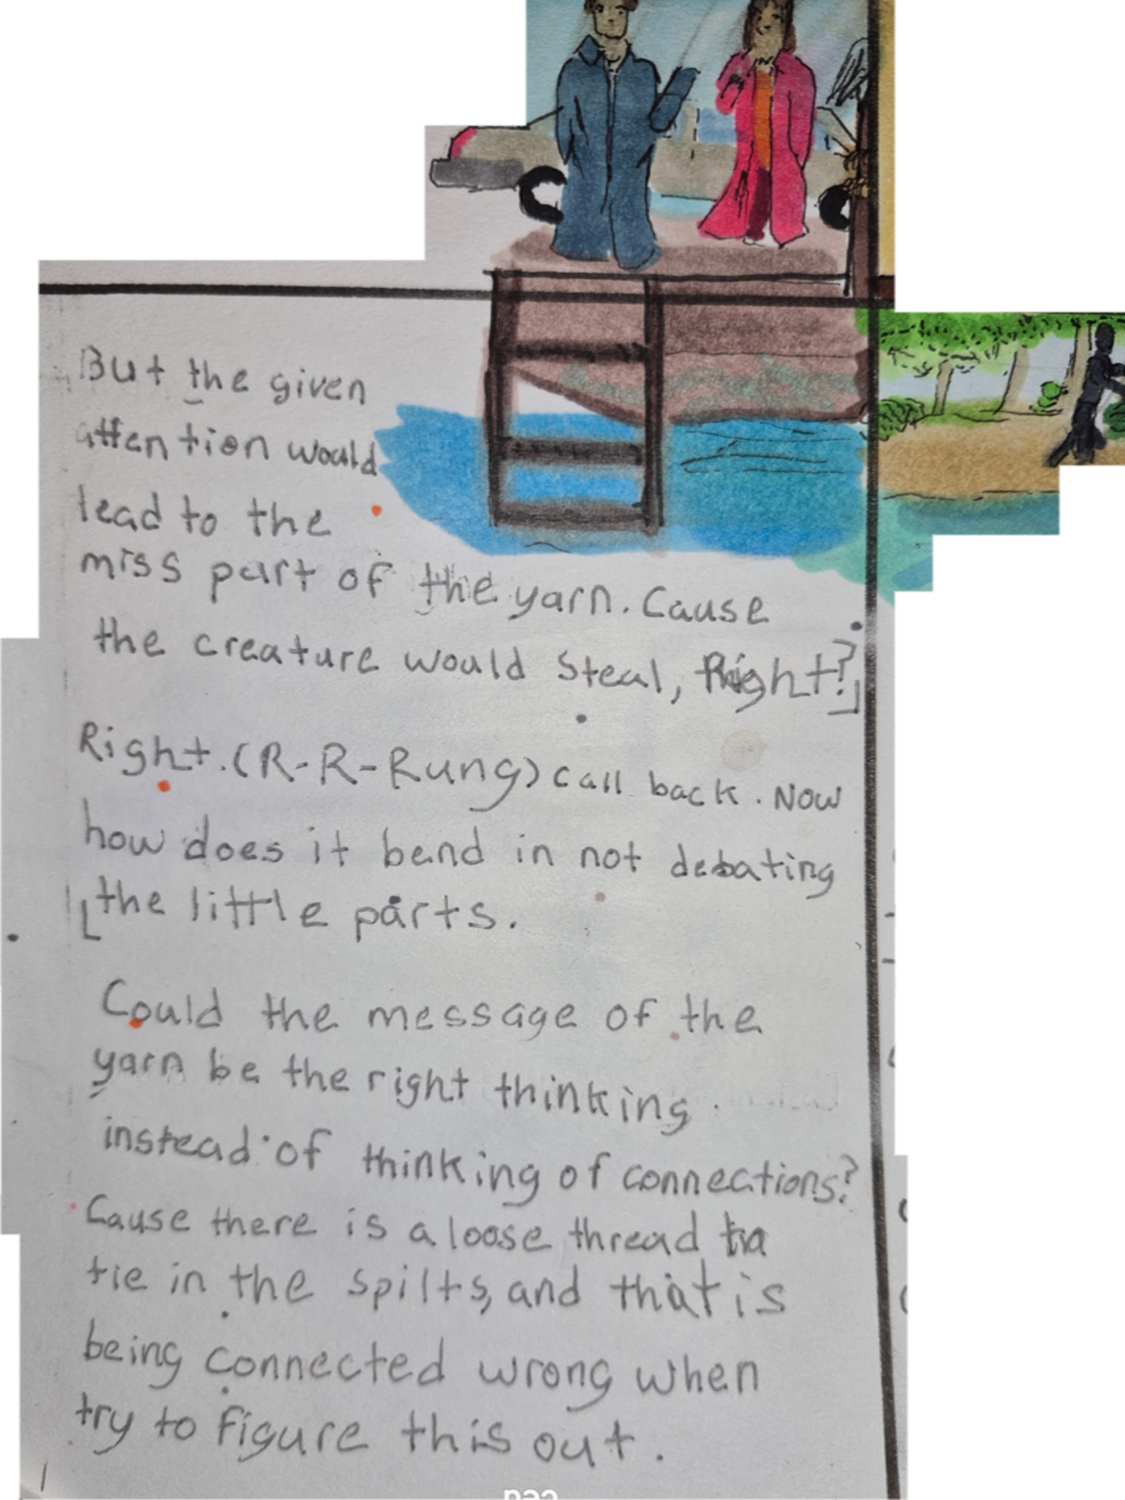 But the given
attention would
lead to the
miss part of the yarn. Cause
the creature would steal, Right?
Right. (R-R-Rung) call back. Now
how does it bend in not debating
the little parts.
Could the message of the
yarn be the right thinking
instead of thinking of connections?
Cause there is a loose thread ta
tie in the spilts, and that is
being connected wrong when
try to figure this out.